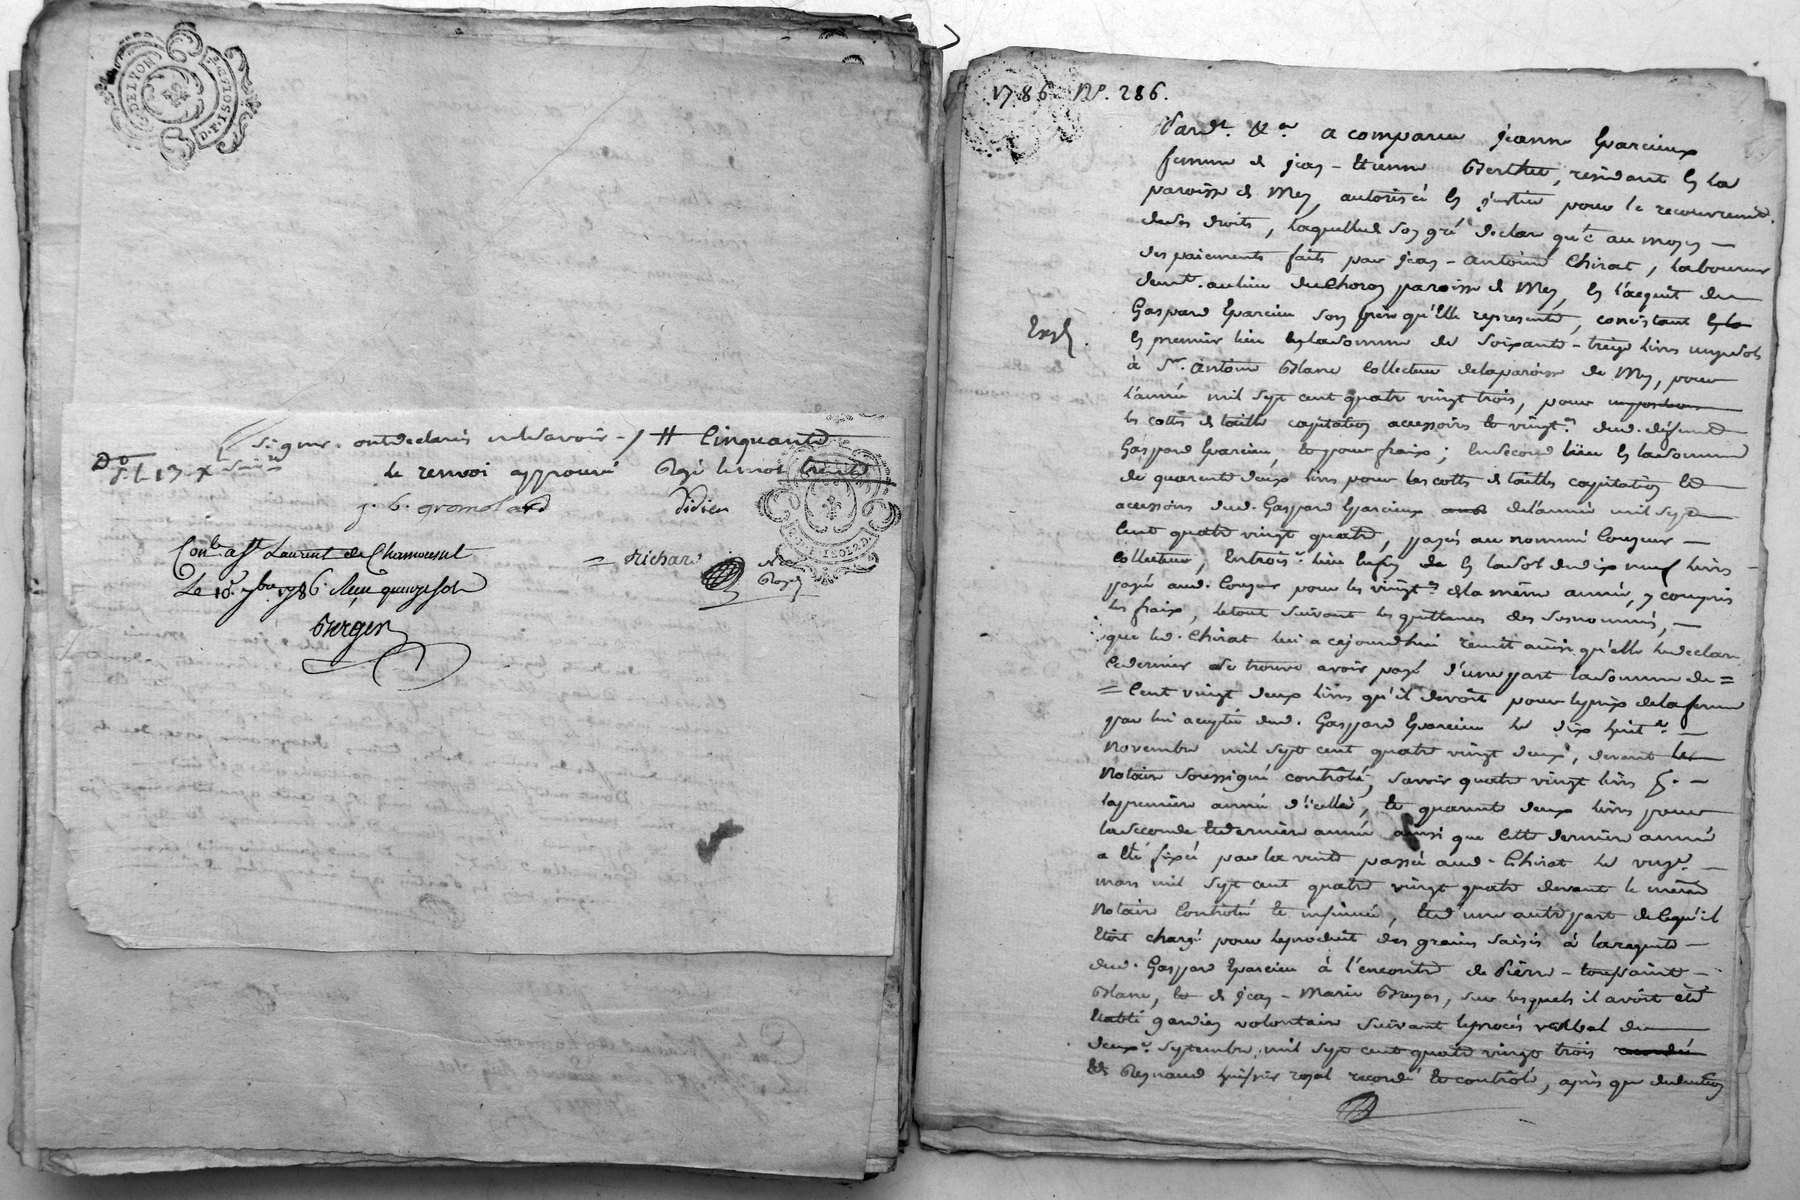 G. DE LYON
2. G. 710S.
D. P. 1 SOL
signer. ont declarés ne le savoir -/ # Cinquante
le renvoi approuvé Rayé le mot trente
j. b. gromolard Didier
Con.lé à S.t Laurent de Chamousset
= Richard
Le 10.e 7bre 1786 Reçu quinze sols
Berger
1786 N°. 286.
Pardt. &a a comparu Jeanne Eparcieux
femme de Jean - Etienne Berthet, résidant en la
paroisse de Mey, autorisée en justice pour le recouvremt.
de ses droits, laquelle de son gré declare qu'el au moyen
des paiements faits par Jean - antoine Chirat, laboureur
demt. au lieu du Choron paroisse de Mey, en l'acquit du
Gaspard Eparcieu son frère qu'elle represente, consistant en la
Exp.
en premier lieu en la somme de soixante - treize livres un sols
à Sr. antoine Blanc Collecteur de la paroisse de Mey, pour
l'année mil sept cent quatre vingt trois, pour imposition
les cottes de taille capitation accessoires et vingt.es dud. défunt
Gaspard Eparcieu, et pour fraix; En second lieu en la somme
de quarente deux livres pour les cottes de tailles capitation et
accessoires dud. Gaspard Eparcieux de l'année mil sept
cent quatre vingt quatre, payés au nommé Couzeur
Collecteur, En trois.e lieu en la de dix neuf livres
payé aud. Couzeur pour les vingt.es de la même année, y compris
les fraix, le tout suivant les quittances des susnommés,
que led. Chirat lui a cejourdhui remit ainsi qu'elle le declare
Ce dernier se trouve avoir payé d'une part la somme de =
= Cent vingt deux livres qu'il devoit pour le prix de la ferme
par lui acceptée dud. Gaspard Eparcieu le dix huit.e
Novembre mil sept cent quatre vingt deux, devant le
Notaire soussigné contrôlé, savoir quatre vingt livres p.
la premiere année d'icelle, et quarente deux livres pour
la seconde et derniere année ainsi que cette derniere année
a été fixée par la vente passée aud. Chirat le vingt
mars mil sept cent quatre vingt quatre devant le même
Notaire Contrôlé et insinuée, et d'une autre part de ce qu'il
étoit chargé pour le produit des grains saisis à la requete
dud. Gaspard Eparcieu à l'encontre de Pierre - toussaint
Blanc, et de Jean - Marie Bruyas, sur lesquels il avoit été
établi gardien volontaire suivant le procès verbal du
deux.e septembre mil sept cent quatre vingt trois
de Reynaud huissier royal recordé et contrôlé, après que deduction